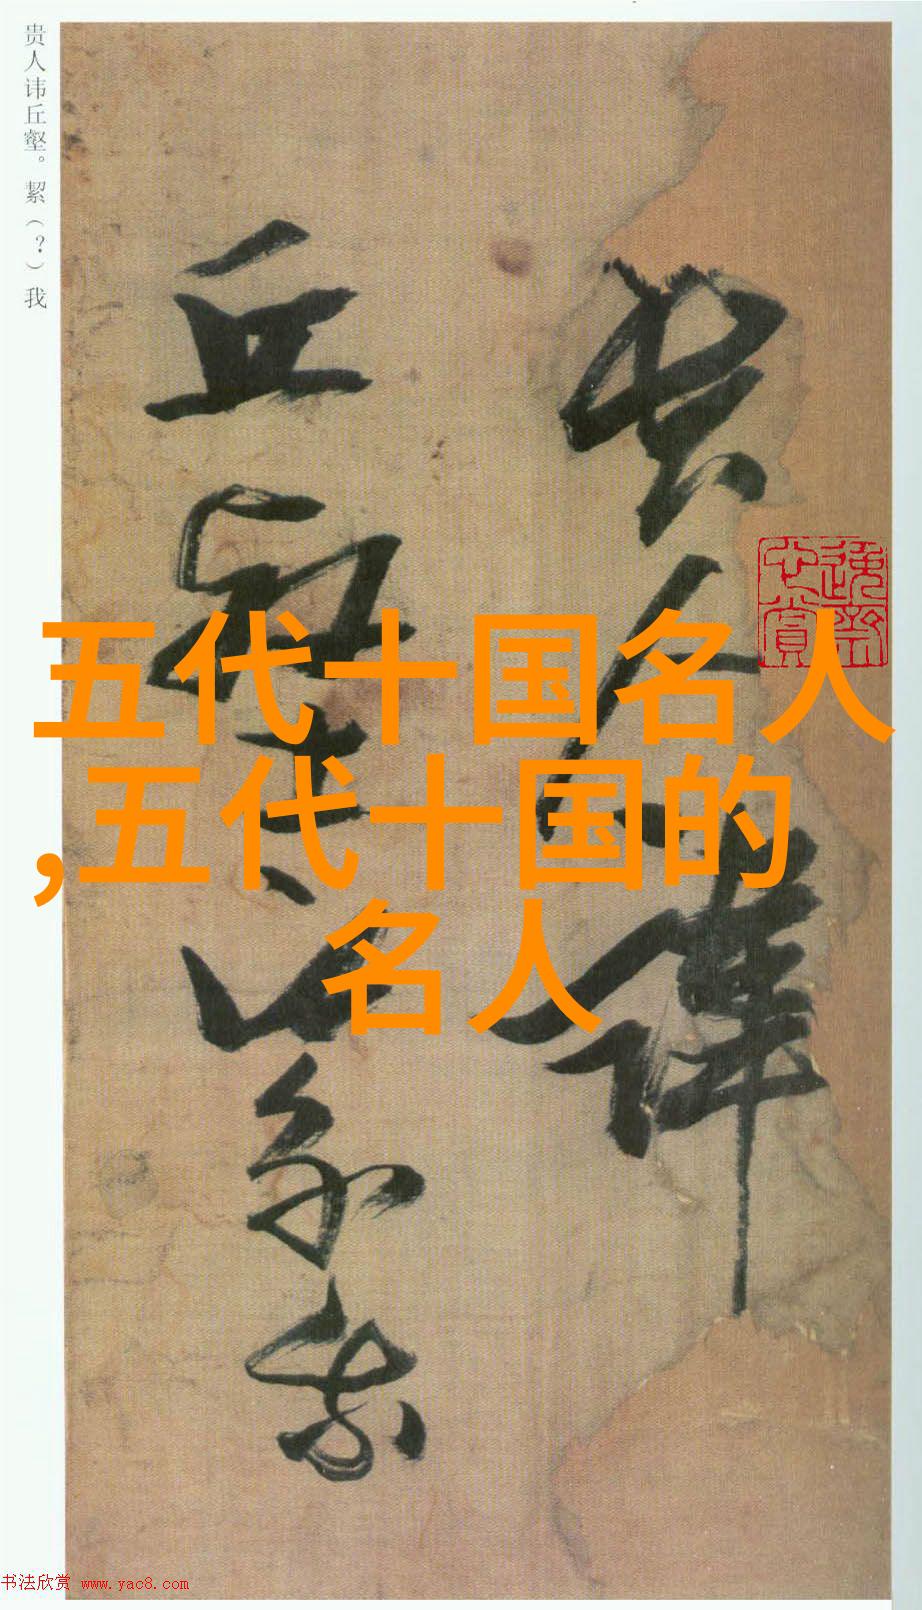 贵人讳丘壑。絜（？）我
贵人讳
丘壑
我
五代十国名人
,五代十国的
名人
书法欣赏 www.yac8.com